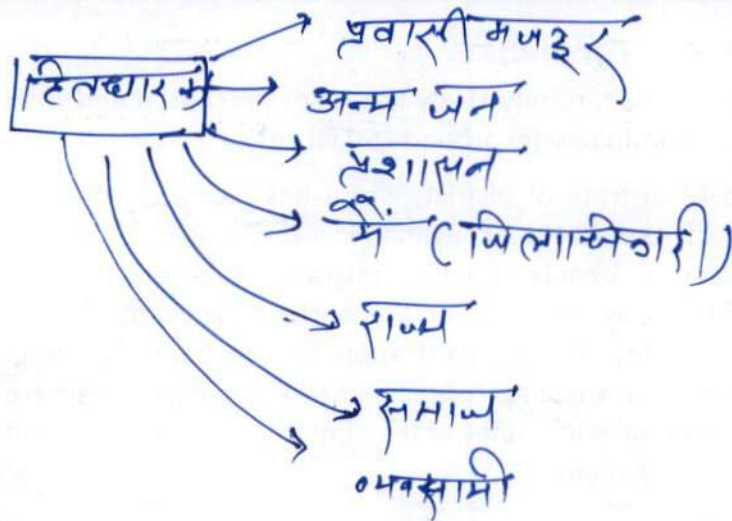 हितधारक
प्रवासी मजदूर
अन्य जन
प्रशासन
मैं (जिलाधिकारी)
राज्य
समाज
व्यवसायी